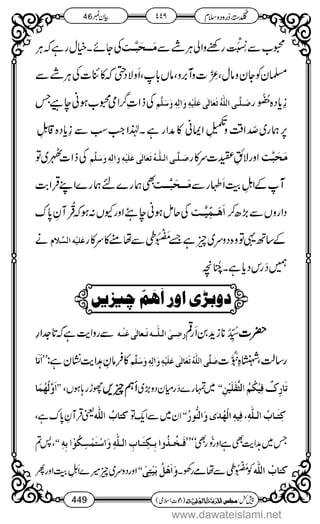 بیان نمبر 46 ۴۴۹ گلدستۂ درود و سلام
محبوب سے نِسبت رکھنے والی ہر شے سے مَحَبَّت کی جائے۔ خیال رہے کہ ہر
مسلمان کو جان ومال، عزّت وآبرو، ماں، باپ، اَولاد حتّٰی کہ کائنات کی ہر شے سے
زِیادہ حُضُور صَلَّی اللّٰہُ تَعَالٰی عَلَیْہِ وَاٰلِہٖ وَسَلَّم کی ذاتِ گرامی محبوب ہونی چاہئے جس
پر ہماری صَداقت وتکمیلِ ایمانی کا دار مدار ہے۔ لہٰذا جب سب سے زیادہ قابلِ
مَحَبَّت اور لائقِ عقیدت سرکار صَلَّی اللّٰہُ تَعَالٰی عَلَیْہِ وَاٰلِہٖ وَسَلَّم کی ذات ٹھہری تو
آپ کے اہلِ بیتِ اَطہار سے مَحَبَّت بھی ہمارے لئے ہمارے اپنے قرابت
داروں سے بڑھ کر اَہَمِّیَّت کی حامل ہونی چاہئے اور کیوں نہ ہو کہ قُرآنِ پاک
کے ساتھ یہی تو وہ دوسری چیز ہے جسے مضبوطی سے تھامنے کا سرکار عَلَیْہِ السَّلَام نے
ہمیں دَرس دیا ہے۔ چُنانچِہ
دو بڑی اور اَہَم چیزیں
حضرت سیِّدُنا زید بن اَرقم رَضِیَ اللّٰہُ تَعَالٰی عَنْہُ سے روایت ہے کہ تاجدارِ
رسالت، شہنشاہِ نَبُوَّت صَلَّی اللّٰہُ تَعَالٰی عَلَیْہِ وَاٰلِہٖ وَسَلَّم کا فرمانِ ہدایت نشان ہے: ’’اَنَا
تَارِکٌ فِیْکُمُ الثَّقَلَیْنِ‘‘ میں تمہارے دَرمیان دو بڑی اَہَم چیزیں چھوڑ رہا ہوں، ’’اَوَّلُہُمَا
کِتَابُ اللّٰہِ، فِیْہِ الْہُدٰی وَالنُّوْرُ‘‘ ان میں سے ایک تو کتابُ اللّٰہ یعنی قرآنِ پاک ہے،
جس میں ہدایت بھی ہے اور نور بھی، ’’فَخُذُوْا بِکِتَابِ اللّٰہِ وَاسْتَمْسِکُوْا بِہٖ‘‘ پس تم
کتابُ اللّٰہ کو مضبوطی سے تھامے رکھو۔ ’’وَاَہْلُ بَیْتِیْ‘‘ اور دوسری چیز میرے اہلِ بیت ہیں اور پھر
449 پیش کش: مجلس المدینۃ العلمیۃ (دعوتِ اسلامی)
www.dawateislami.net